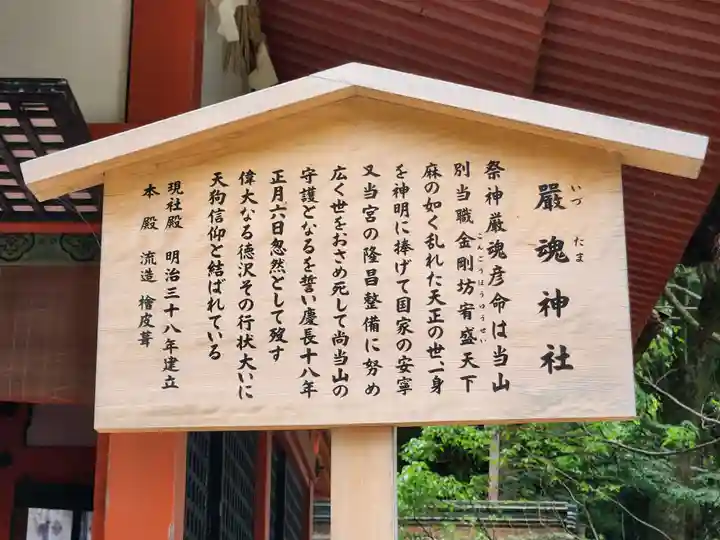 嚴魂神社
いづたま
祭神厳魂彦命は当山
別当職金剛坊宥盛天下
こんごうほうゆうせい
麻の如く乱れた天正の世一身
を神明に捧げて国家の安寧
又当宮の隆昌整備に努め
広く世をおさめ死して尚当山の
守護となるを誓い慶長十八年
正月六日忽然として歿す
偉大なる徳沢その行状大いに
天狗信仰と結ばれている
現社殿 明治三十八年建立
本殿 流造 檜皮葺